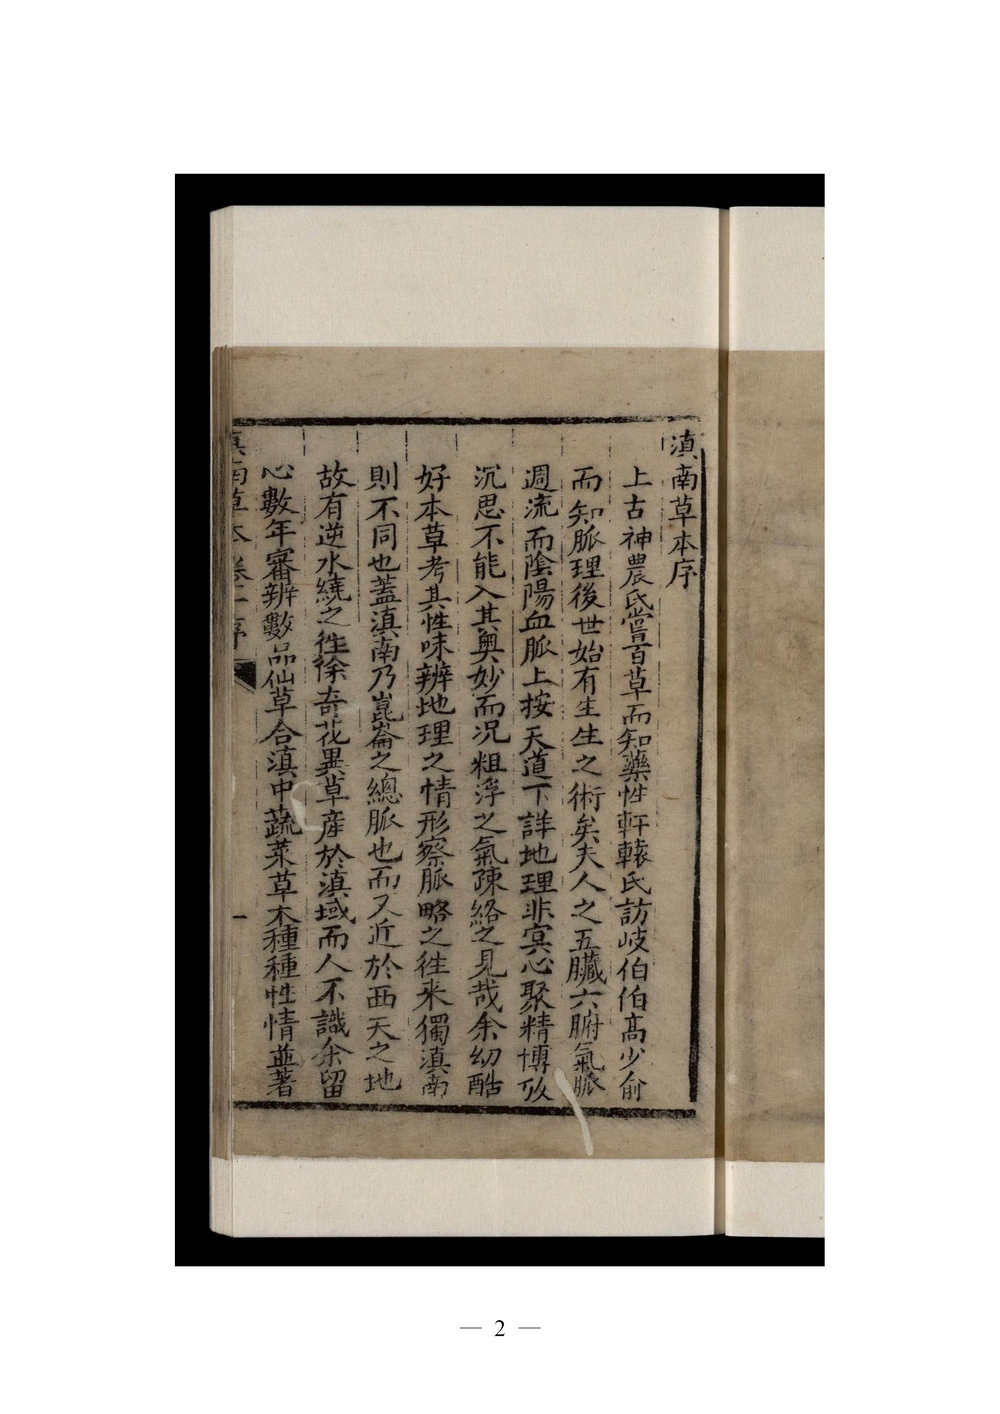 滇南草本序
上古神農氏嘗百草而知藥性軒轅氏訪岐伯伯高少俞
而知脈理後世始有生生之術矣夫人之五臟六腑氣脈
週流而陰陽血脈上按天道下詳地理非冥心聚精博攷
沉思不能入其奧妙而況粗浮之氣陳絡之見哉余幼酷
好本草考其性味辨地理之情形察脈略之徃来獨滇南
則不同也蓋滇南乃崑崙之總脈也而又近於西天之地
故有逆水繞之徃徐奇花異草産於滇域而人不識余留
心數年審辨數品仙草合滇中蔬菜草木種種性情並著
滇南草本卷一序
一
— 2 —